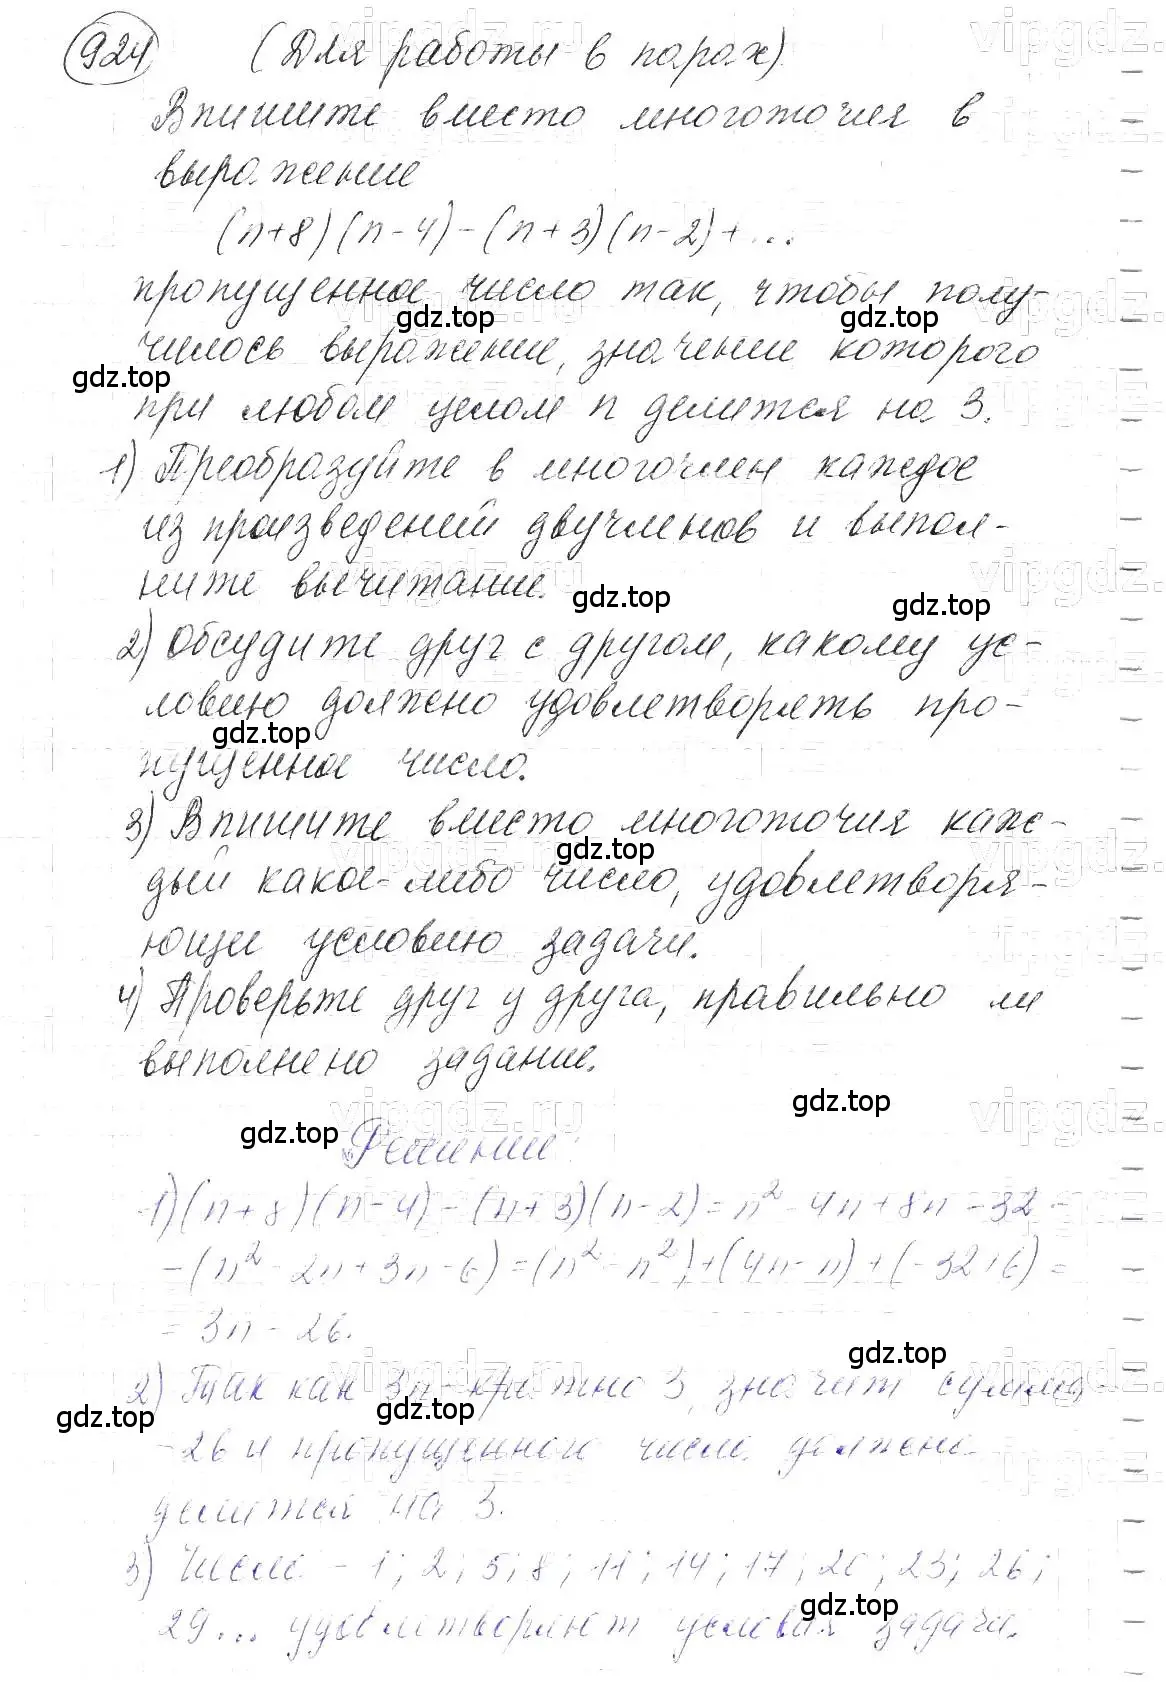 924 (Для работы в парах)
Впишите вместо многоточия в
выражение
(n+8)(n-4)-(n+3)(n-2)+...
пропущенное число так, чтобы полу-
чилось выражение, значение которого
при любом целом n делится на 3.
1) Преобразуйте в многочлен каждое
из произведений двучленов и выпол-
ните вычитание.
2) Обсудите друг с другом, какому ус-
ловию должно удовлетворять про-
пущенное число.
3) Впишите вместо многоточия каж-
дый какое-либо число, удовлетворя-
ющее условию задачи.
4) Проверьте друг у друга, правильно ли
выполнено задание.
Решение:
1) (n+8)(n-4)-(n+3)(n-2)=n²-4n+8n-32-
-(n²-2n+3n-6)=(n²-n²)+(4n-n)+(-32+6)=
=3n-26.
2) Так как 3n кратно 3, значит сумма
-26 и пропущенного числа должна
делиться на 3.
3) Числа -1; 2; 5; 8; 11; 14; 17; 20; 23; 26;
29... удовлетворяют условия задачи.
gdz.top
gdz.top
gdz.top
gdz.top
gdz.top
gdz.top
gdz.top
gdz.top
gdz.top
gdz.top
gdz.top
gdz.top
gdz.top
vipgdz.ru
vipgdz.ru
vipgdz.ru
vipgdz.ru
vipgdz.ru